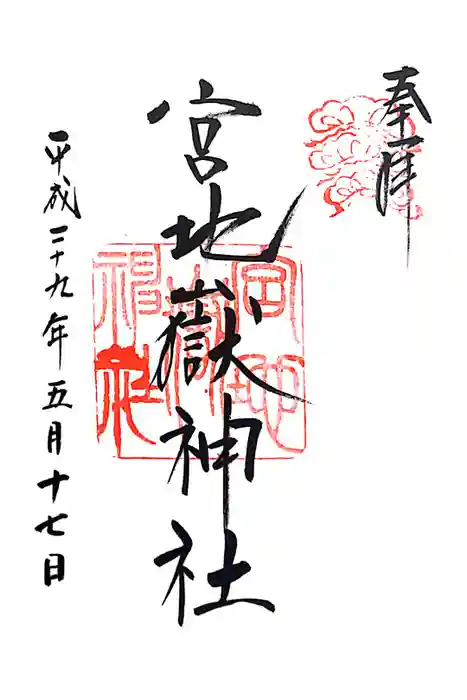 奉拝
宮地嶽神社
平成二十九年五月十七日
宮地
嶽
神社